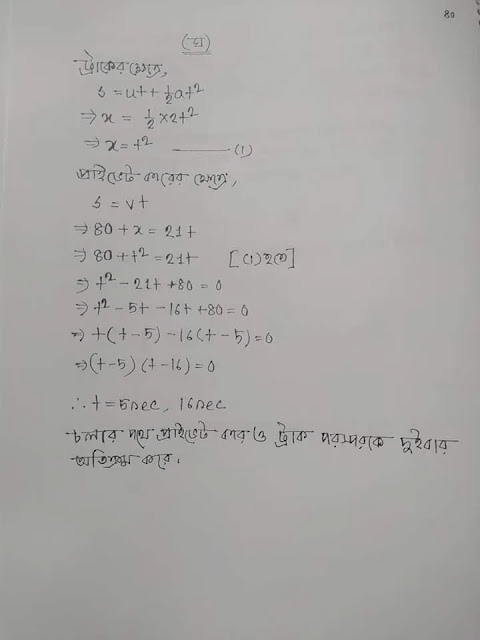 80
(ঘ)
ট্রাকের ক্ষেত্রে,
s = ut + ½at²
⇒ x = ½ × 2t²
⇒ x = t² ——— (1)
প্রাইভেট কারের ক্ষেত্রে,
s = vt
⇒ 80 + x = 21t
⇒ 80 + t² = 21t [(1) হতে]
⇒ t² - 21t + 80 = 0
⇒ t² - 5t - 16t + 80 = 0
⇒ t(t - 5) - 16(t - 5) = 0
⇒ (t - 5) (t - 16) = 0
∴ t = 5sec, 16sec
চলার পথে প্রাইভেট কার ও ট্রাক পরস্পরকে দুইবার
অতিক্রম করে।